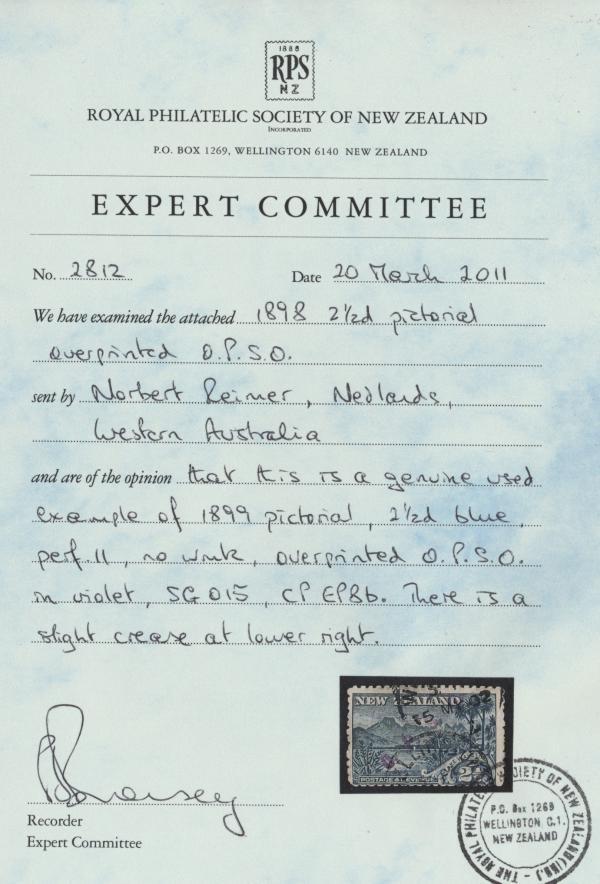 1888
RPS
NZ
ROYAL PHILATELIC SOCIETY OF NEW ZEALAND
INCORPORATED
P.O. BOX 1269, WELLINGTON 6140 NEW ZEALAND
EXPERT COMMITTEE
No. 2812 Date 20 March 2011
We have examined the attached 1898 2½d pictorial
overprinted O.P.S.O.
sent by Norbert Reimer, Nedlands,
Western Australia
and are of the opinion that this is a genuine used
example of 1899 pictorial, 2½d blue,
perf. 11, no wmk, overprinted O.P.S.O.
in violet, SG O15, CP EP8b. There is a
slight crease at lower right.
NEW ZEALAND
POSTAGE & REVENUE
Recorder
Expert Committee
THE ROYAL PHILATELIC SOCIETY OF NEW ZEALAND (INC.) -
P.O. Box 1269
WELLINGTON C.1.
NEW ZEALAND